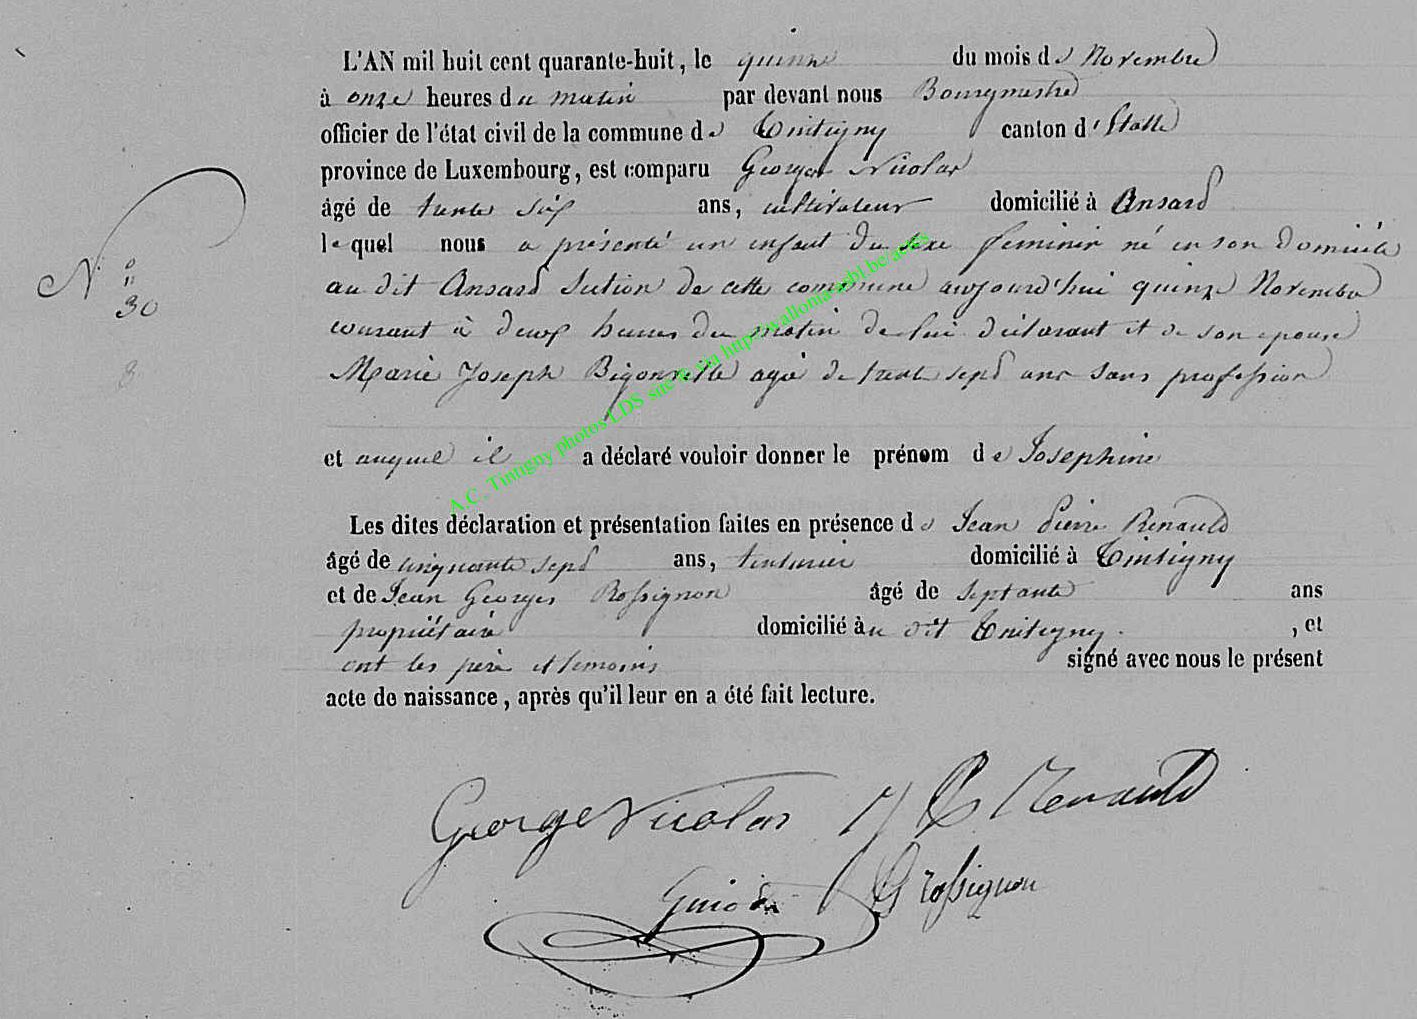 L'AN mil huit cent quarante-huit, le quinze du mois de Novembre
à onze heures du matin par devant nous Bourgmestre
officier de l'état civil de la commune de Tintigny canton d'Etalle
province de Luxembourg, est comparu Georges Nicolas
âgé de trente six ans, cultivateur domicilié à Ansard
lequel nous a présenté un enfant du sexe feminin né en son domicile
au dit Ansard Section de cette commune aujourd'hui quinze Novembre
N° 30
courant à deux heures du matin de lui déclarant et de son epouse
Marie Joseph Bigonville agée de trente sept ans sans profession
et auquel il a déclaré vouloir donner le prénom de Josephine
Les dites déclaration et présentation faites en présence de Jean Pierre Renauld
âgé de cinquante sept ans, teinturier domicilié à Tintigny
et de Jean Georges Rossignon âgé de septante ans
propriétaire domicilié au dit Tintigny. , et
ont les père et temoins signé avec nous le présent
acte de naissance, après qu'il leur en a été fait lecture.
George Nicolas J P Renauld
Rossignon
A.C. Tintigny photos LDS site © via http://wallonia-asbl.be/actes